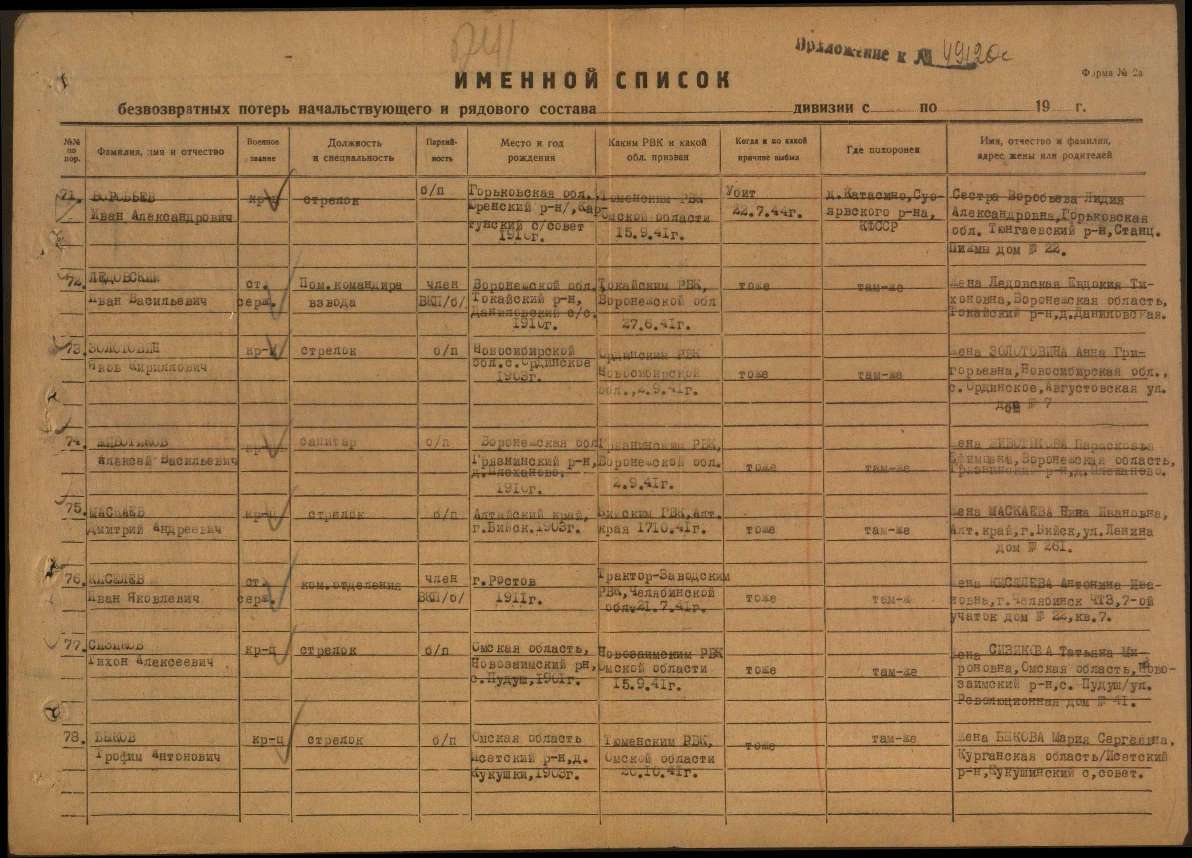 Приложение к № 49120с
ИМЕННОЙ СПИСОК
Форма № 2а
безвозвратных потерь начальствующего и рядового состава дивизии с по 19 г.
№№ по пор.
Фамилия, имя и отчество
Военное звание
Должность и специальность
Партийность
Место и год рождения
Каким РВК и какой обл. призван
Когда и по какой причине выбыл
Где похоронен
Имя, отчество и фамилия, адрес жены или родителей
71. ВОРОБЬЕВ
Иван Александрович
кр-ц
стрелок
б/п
Горьковская обл.
р-н/, Кар-
тунский с/совет
1910г.
Тюменским РВК
Омской области
15.9.41г.
Убит
22.7.44г.
д. Катасино, Суо-
ярвского р-на,
КФССР
Сестра Воробьева Лидия
Александровна, Горьковская
обл. Тюнгаевский р-н, Станц.
Пижмы дом № 22.
72. ЛЕДОВСКИЙ
Иван Васильевич
ст.
серж.
Пом. командира
взвода
член
ВКП/б/
Воронежской обл.
Токайский р-н,
Даниловский с/с.
1910г.
Токайским РВК,
Воронежской обл
27.6.41г.
тоже
там-же
жена Ледовская Евдокия Ти-
хоновна, Воронежская область,
Токайский р-н, д. Даниловская.
73. ЗОЛОТОВИН
Яков Кириллович
кр-ц
стрелок
б/п
Новосибирской
обл. с. Ордынское
1903г.
Ордынским РВК
Новосибирской
обл., 2.9.41г.
тоже
там-же
жена ЗОЛОТОВИНА Анна Гри-
горьевна, Новосибирская обл.,
с. Ординское, Августовская ул.
дом № 7
74. ЖИВОТИКОВ
Алексей Васильевич
кр-ц
санитар
б/п
Воронежская обл
Грязнинский р-н,
д. Плеханово.
1910г.
РВК,
Воронежской обл.
2.9.41г.
тоже
там-же
жена ЖИВОТИКОВА Парасковья
Ефимовна, Воронежская область,
р-н, д. Плеханово.
75. МАСКАЕВ
Дмитрий Андреевич
кр-ц
стрелок
б/п
Алтайский край,
г. Бийск. 1903г.
Бийским РВК, Алт.
края 1710.41г.
тоже
там-же
жена МАСКАЕВА Нина Ивановна,
Алт. край, г. Бийск, ул. Ленина
дом № 261.
76. КИСЕЛЕВ
Иван Яковлевич
ст.
серж.
ком. отделения
член
ВКП/б/
г. Ростов
1911г.
Трактор-Заводским
РВК, Челябинской
обл. 21.7.41г.
тоже
там-же
жена КИСЕЛЕВА Антонина Ива-
новна, г. Челябинск ЧТЗ, 7-ой
учаток дом № 22, кв. 7.
77. СИЗИКОВ
Тихон Алексеевич
кр-ц
стрелок
б/п
Омская область,
Новозаимский рн,
с. Пудуш, 1901г.
Новозаимским РВК
Омской области
15.9.41г.
тоже
там-же
жена СИЗИКОВА Татьяна Ми-
роновна, Омская область, Ново-
заимский р-н, с. Пудуш/ул.
Революционная дом № 41.
78. БЫКОВ
Трофим Антонович
кр-ц
стрелок
б/п
Омская область
Исетский р-н, д.
Кукушки, 1903г.
Тюменским РВК,
Омской области
20.10.41г.
тоже
там-же
жена БЫКОВА Мария Сергеевна,
Курганская область/Исетский
р-н, Кукушинский с, совет.